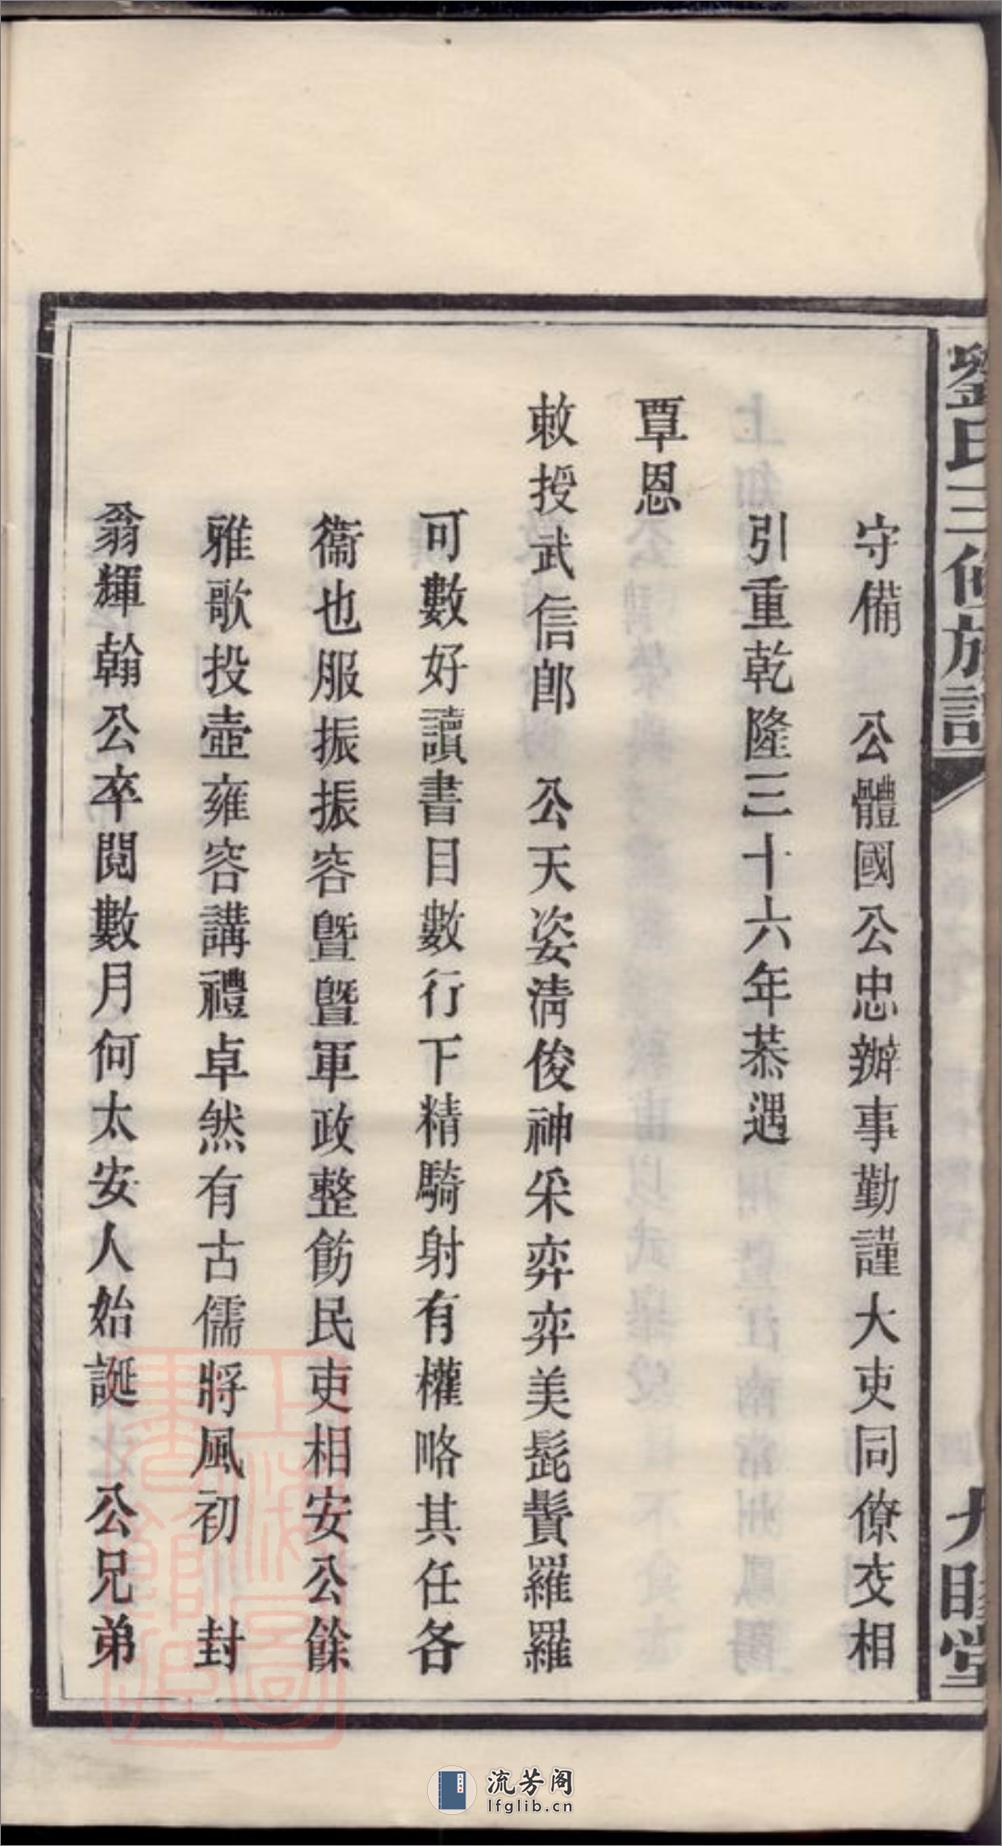 劉氏三修族譜
九睦堂
守備　公體國公忠辦事勤謹大吏同僚交相
引重乾隆三十六年恭遇
覃恩
敕授武信郎　公天姿清俊神采弈弈美髭鬚羅羅
可數好讀書目數行下精騎射有權略其任各
衞也服振振容曁曁軍政整飭民吏相安公餘
雅歌投壺雍容講禮卓然有古儒將風初　封
翁輝翰公卒閱數月何太安人始誕　公兄弟
上海圖書館藏
流芳阁
lfglib.cn